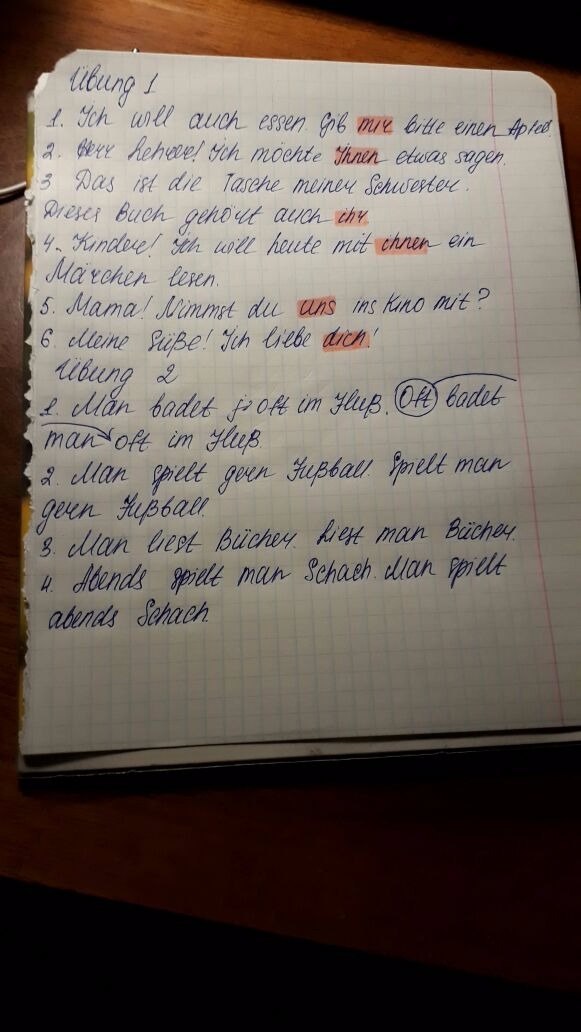 Übung 1
1. Ich will auch essen. Gib mir bitte einen Apfel.
2. Herr Lehrer! Ich möchte Ihnen etwas sagen.
3 Das ist die Tasche meiner Schwester.
Dieses Buch gehört auch ihr.
4. Kinder! Ich will heute mit ihnen ein
Märchen lesen.
5. Mama! Nimmst du uns ins Kino mit?
6. Meine Süße! Ich liebe dich!
Übung 2
1. Man badet oft im Fluß. Oft badet
man oft im Fluß.
2. Man spielt gern Fußball. Spielt man
gern Fußball.
3. Man liest Bücher. Liest man Bücher.
4. Abends spielt man Schach. Man spielt
abends Schach.